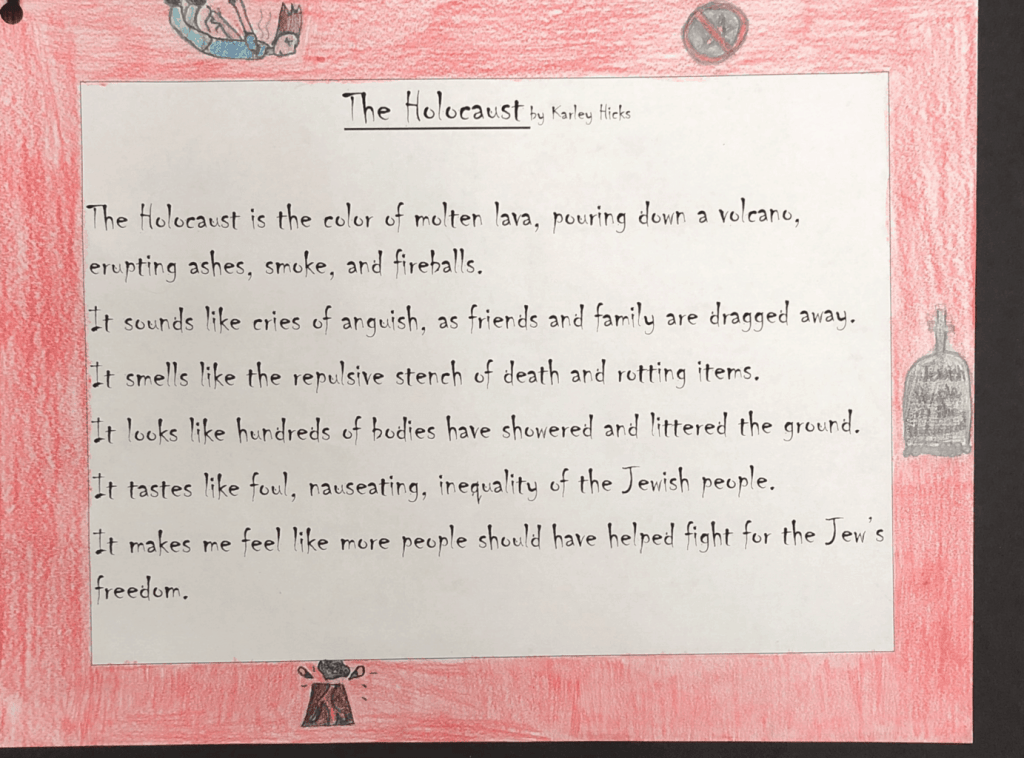 The Holocaust by Karley Hicks
The Holocaust is the color of molten lava, pouring down a volcano,
erupting ashes, smoke, and fireballs.
It sounds like cries of anguish, as friends and family are dragged away.
It smells like the repulsive stench of death and rotting items.
It looks like hundreds of bodies have showered and littered the ground.
It tastes like foul, nauseating, inequality of the Jewish people.
It makes me feel like more people should have helped fight for the Jew's
freedom.